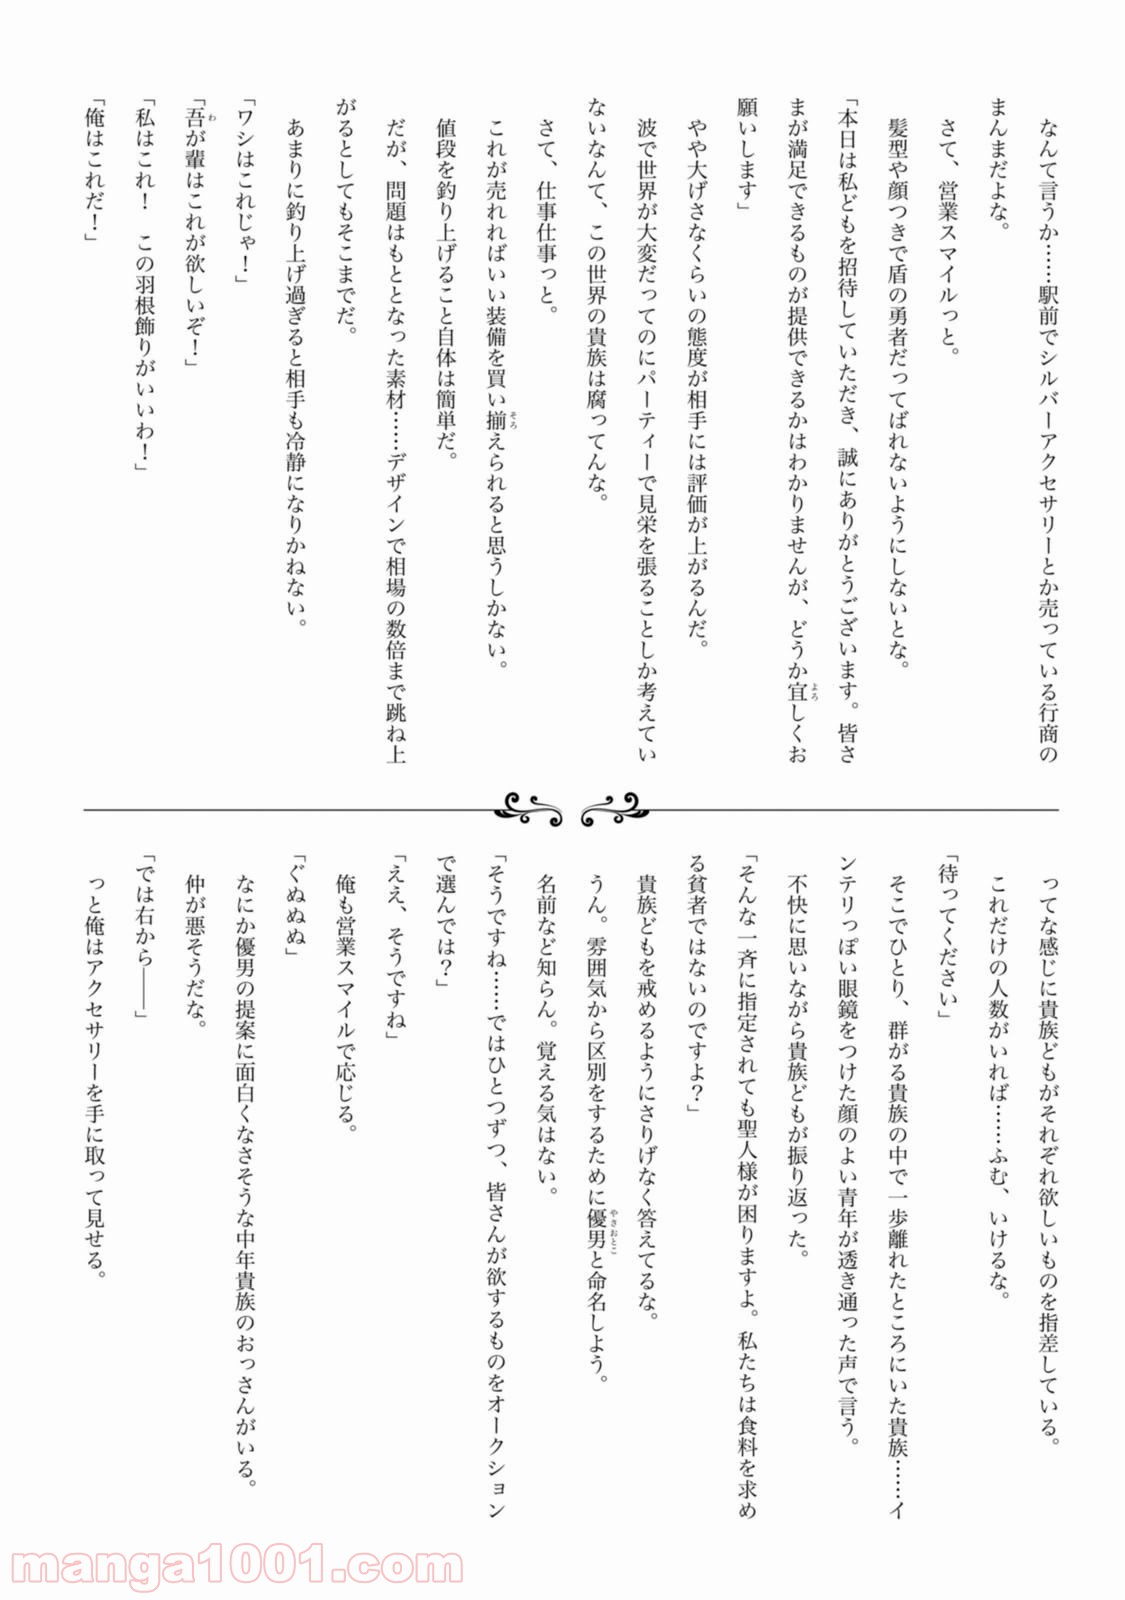 なんて言うか……駅前でシルバーアクセサリーとか売っている行商の
まんまだよな。
さて、営業スマイルっと。
髪型や顔つきで盾の勇者だってばれないようにしないとな。
「本日は私どもを招待していただき、誠にありがとうございます。皆さ
まが満足できるものが提供できるかはわかりませんが、どうか宜しくお
よろ
願いします」
やや大げさなくらいの態度が相手には評価が上がるんだ。
波で世界が大変だってのにパーティーで見栄を張ることしか考えてい
ないなんて、この世界の貴族は腐ってんな。
さて、仕事仕事っと。
これが売れればいい装備を買い揃えられると思うしかない。
そろ
値段を釣り上げること自体は簡単だ。
だが、問題はもととなった素材……デザインで相場の数倍まで跳ね上
がるとしてもそこまでだ。
あまりに釣り上げ過ぎると相手も冷静になりかねない。
「ワシはこれじゃ！」
「吾が輩はこれが欲しいぞ！」
わ
「私はこれ！　この羽根飾りがいいわ！」
「俺はこれだ！」
ってな感じに貴族どもがそれぞれ欲しいものを指差している。
これだけの人数がいれば……ふむ、いけるな。
「待ってください」
そこでひとり、群がる貴族の中で一歩離れたところにいた貴族……イ
ンテリっぽい眼鏡をつけた顔のよい青年が透き通った声で言う。
不快に思いながら貴族どもが振り返った。
「そんな一斉に指定されても聖人様が困りますよ。私たちは食料を求め
る貧者ではないのですよ？」
貴族どもを戒めるようにさりげなく答えてるな。
うん。雰囲気から区別をするために優男と命名しよう。
やさおとこ
名前など知らん。覚える気はない。
「そうですね……ではひとつずつ、皆さんが欲するものをオークション
で選んでは？」
「ええ、そうですね」
俺も営業スマイルで応じる。
「ぐぬぬぬ」
なにか優男の提案に面白くなさそうな中年貴族のおっさんがいる。
仲が悪そうだな。
「では右から――」
っと俺はアクセサリーを手に取って見せる。
manga1001.com